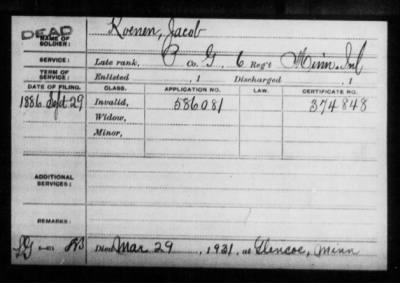 DEAD
NAME OF SOLDIER: Koenen, Jacob
SERVICE: Late rank, P Co. G, 6 Reg't Minn. Inf
TERM OF SERVICE: Enlisted , 1 Discharged , 1
DATE OF FILING. CLASS. APPLICATION NO. LAW. CERTIFICATE NO.
1886 Sept 29 Invalid, 586081 374848
Widow,
Minor,
ADDITIONAL SERVICES:
REMARKS:
Died Mar. 29, 1921, at Glencoe, Minn